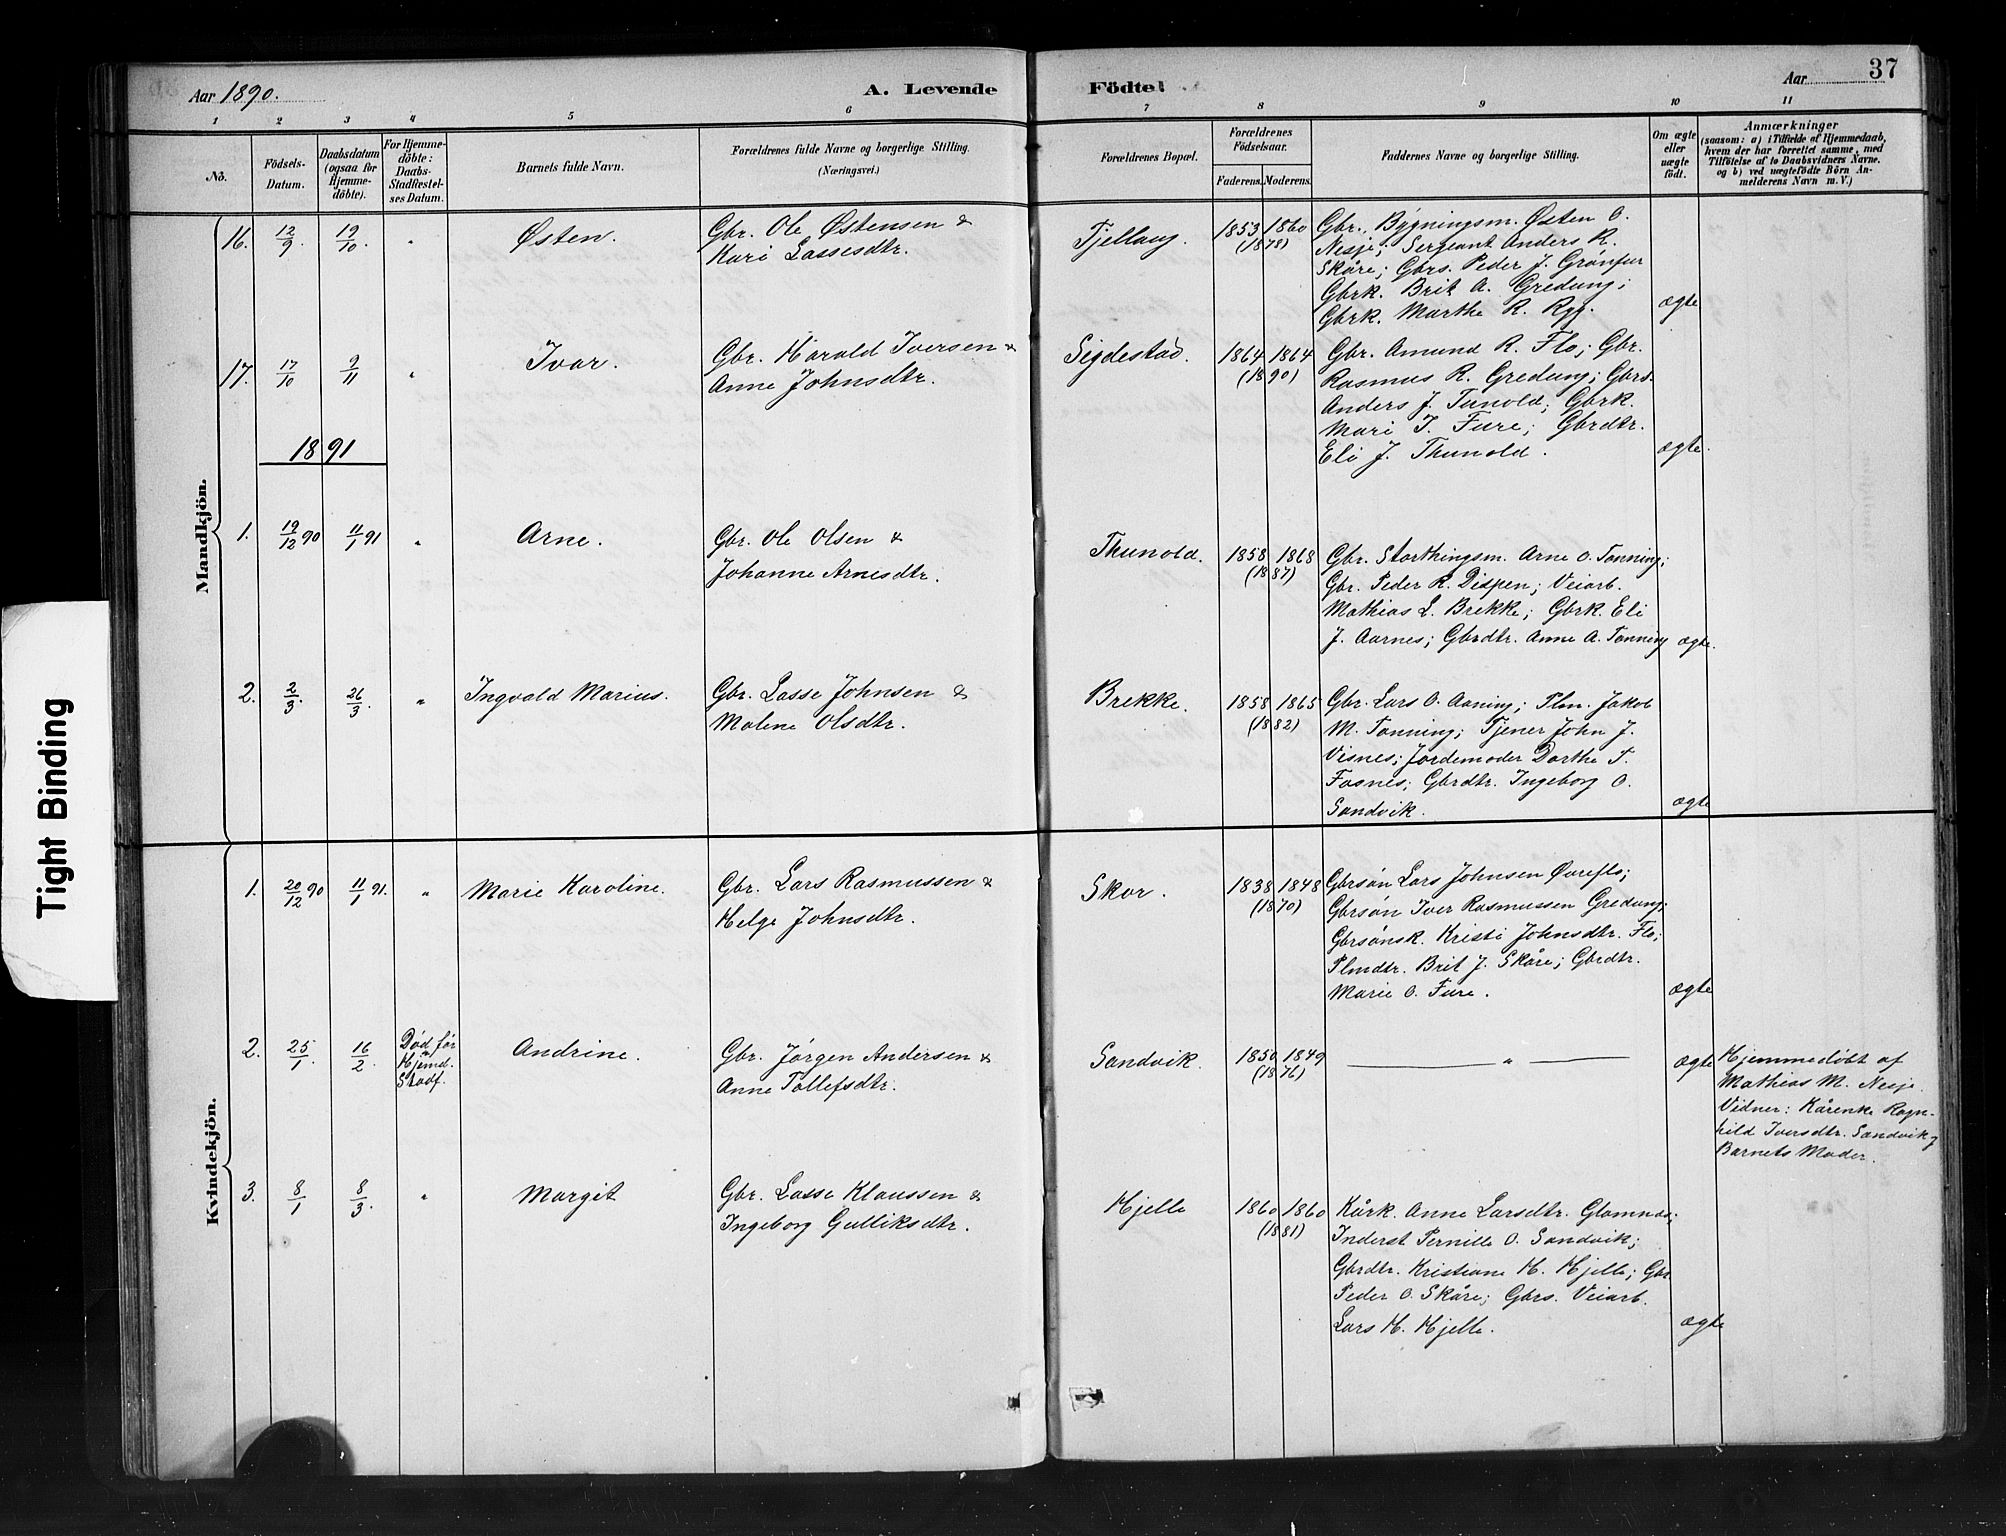 Aar 1890.
A. Levende
Födte.
Aar
37
1 2 3 4 5 6 7 8 9 10 11
No.
Födsels-
Datum.
Daabsdatum
(ogsaa for
Hjemme-
döbte).
For Hjemme-
döbte:
Daabs-
Stadfæstel-
ses Datum.
Barnets fulde Navn.
Forældrenes fulde Navne og borgerlige Stilling.
(Næringsvei.)
Forældrenes Bopæl.
Forældrenes
Födselsaar.
Faderens. Moderens.
Faddernes Navne og borgerlige Stilling.
Om ægte
eller
uægte
födt.
Anmærkninger
(saasom: a) i Tilfælde af Hjemmedaab,
hvem der har forrettet samme, med
Tilföielse af to Daabsvidners Navne.
og b) ved uægtefödte Börn An-
melderens Navn m. V.)
Mandkjön.
16. 12/9 19/10. " Østen.
Gbr. Ole Østensen &
Kari Lassesdtr.
Tjellaug.
1853 1860
(1878)
Gbr. Bygningsm. Østen O.
Nesje; Sergeant Anders R.
Skåre; Gbrs. Peder J. Grønfur
Gbrk. Brit A. Gredung;
Gbrk. Marthe R. Ryg.
ægte
17. 17/10 9/11 " Ivar.
Gbr. Harald Iversen &
Anne Johnsdtr.
Sigdestad.
1864 1864
(1890)
Gbr. Amund R. Flo; Gbr.
Rasmus R. Gredung; Gbrs.
Anders J. Tunold; Gbrk.
Mari I. Fure; Gbrdtr.
Eli J. Thunold.
ægte.
1891
1. 19/12 90 11/1 91 " Arne.
Gbr. Ole Olsen &
Johanne Arnesdtr.
Thunold.
1858 1868
(1887)
Gbr. Storthingsm. Arne O. Tonning;
Gbr. Peder R. Dispen; Veiarb.
Mathias L. Brekke; Gbrk. Eli
J. Aarnes; Gbrdtr. Anne A. Tonning
ægte.
2. 2/3. 26/3. " Ingvald Marius.
Gbr. Lasse Johnsen &
Malene Olsdtr.
Brekke.
1858 1865
(1882)
Gbr. Lars O. Aaning; Plm. Jakob
M. Tonning; Tjener John J.
Visnes; Jordemoder Dorthe T.
Fosnes; Gbrdtr. Ingeborg O.
Sandvik.
ægte
Kvindekjön.
1. 20/12 90 11/1 91. " Marie Karoline.
Gbr. Lars Rasmussen &
Helge Johnsdtr.
Skor.
1838 1848
(1870)
Gbrsøn Lars Johnsen Øvreflo;
Gbrsøn Iver Rasmussen Gredung;
Gbrsønsk. Kristi Johnsdtr. Flo;
Plmdtr. Brit J. Skåre; Gbrdtr.
Marie O. Fure.
ægte
2. 25/1. 16/2
Død før
Hjemd.
Stadf.
Andrine.
Gbr. Jørgen Andersen &
Anne Tollefsdtr.
Sandvik.
1850 1849
(1876)
"
ægte
Hjemmedøbt af
Mathias M. Nesje.
Vidner: Kårenke Ragn-
hild Iversdtr. Sandvik og
Barnets Moder.
3. 8/1 8/3 " Margit
Gbr. Lasse Klaussen &
Ingeborg Gulliksdtr.
Hjelle
1860 1860
(1881)
Kårk. Anne Larsdtr. Glomnes;
Inderst Pernille O. Sandvik;
Gbrdtr. Kristiane H. Hjelle; Gbr.
Peder O. Skåre; Gbrs. Veiarb.
Lars H. Hjelle.
ægte
Tight Binding